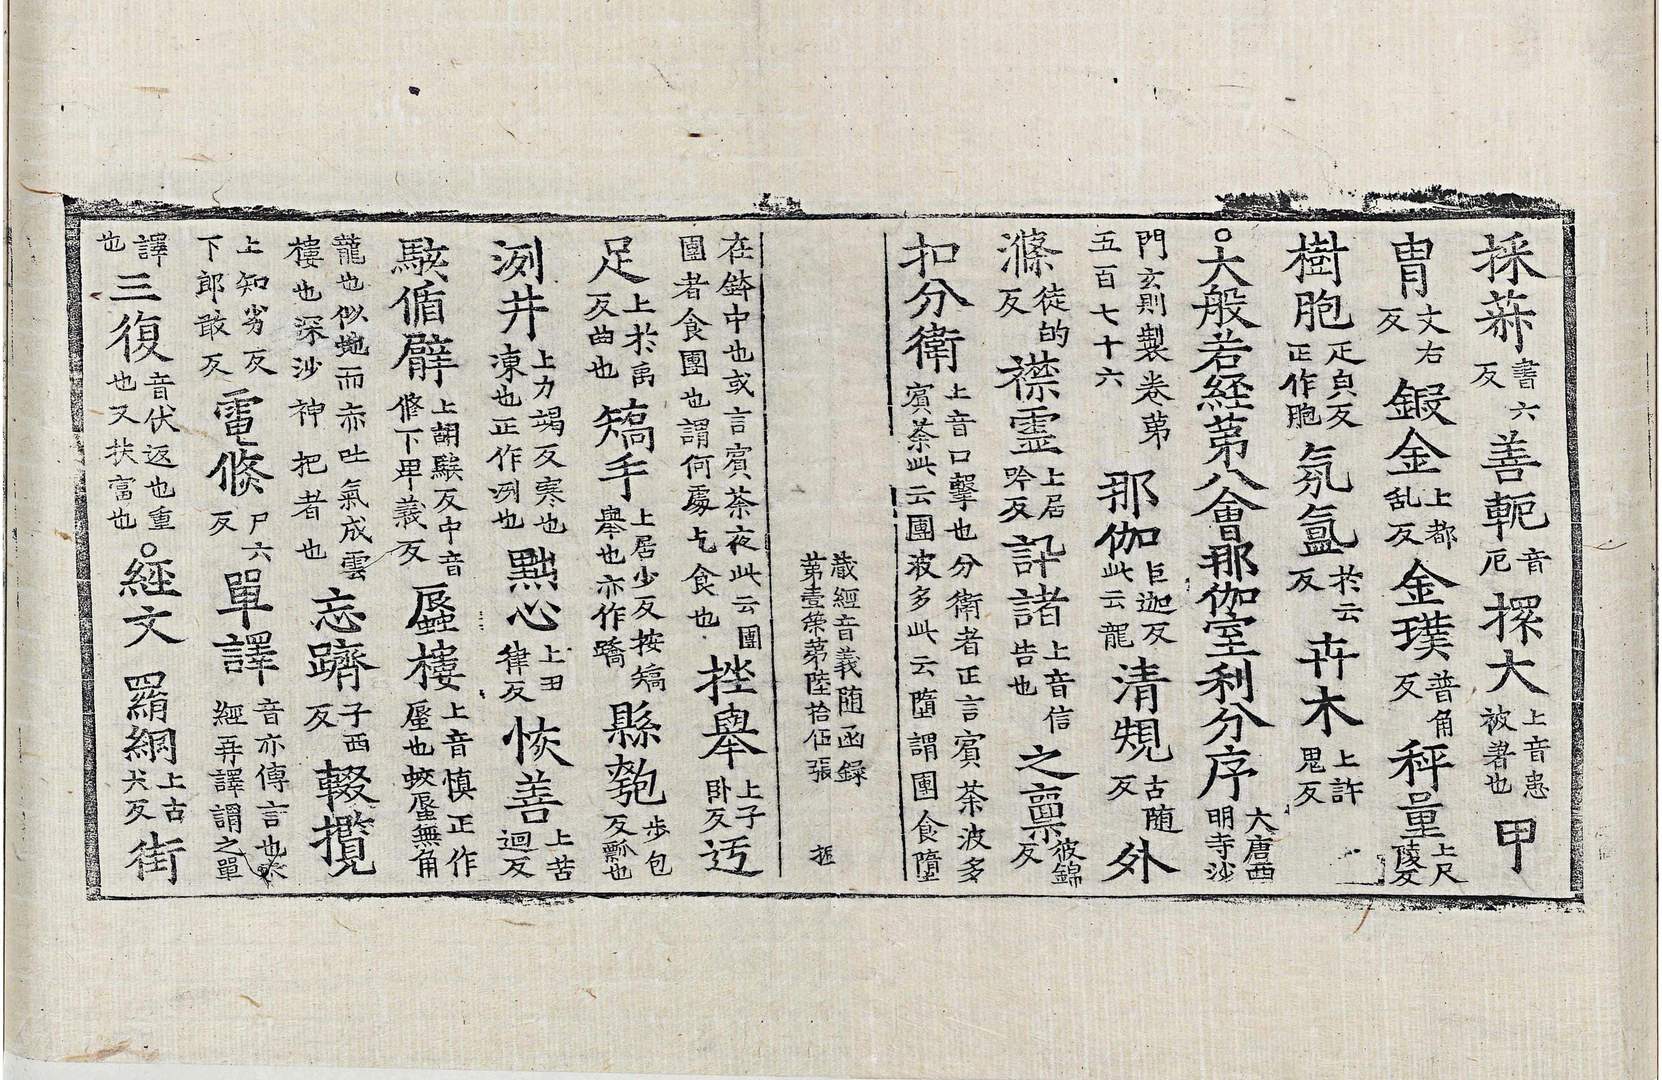 採蒜書六反善軛音厄擐大上音患被著也甲
冑文右反鍛金上都乱反金璞普角反秤量上尺陵反
樹胞疋皃反正作胞氛氳於云反卉木上許鬼反
○大般若経第八會那伽室利分序大唐西明寺沙
門玄則製卷第五百七十六那伽巨迦反此云龍清䂓古随反外
滌徒的反襟靈上居吟反訊諸上音信告也之稟彼錦反
扣分衛上音口擊也分衛者正言賓茶波多賓茶此云團波多此云墮謂團食墮
蔵經音義随函録第壹策第陸拾伍張 振
在鉢中也或言賓茶夜此云團團者食團也謂何處乞食也挫舉上子卧反迃
足上於禹反曲也矯手上居少反按矯舉也亦作蹻縣匏步包反瓢也
洌井上力竭反寒也凍也正作冽也點心上田律反恢善上苦迴反
駭循臂上胡騃反中音脩下卑義反蜃樓上音慎正作蜃也蛟蜃無角
龍也似虵而亦吐氣成雲樓也深沙神把者也忘躋子西反輟攬
上知劣反下郎敢反電倏尸六反單譯音亦傳言也又經再譯謂之單
譯也三復音伏返也重也又扶富也○經文羂網上古犬反街